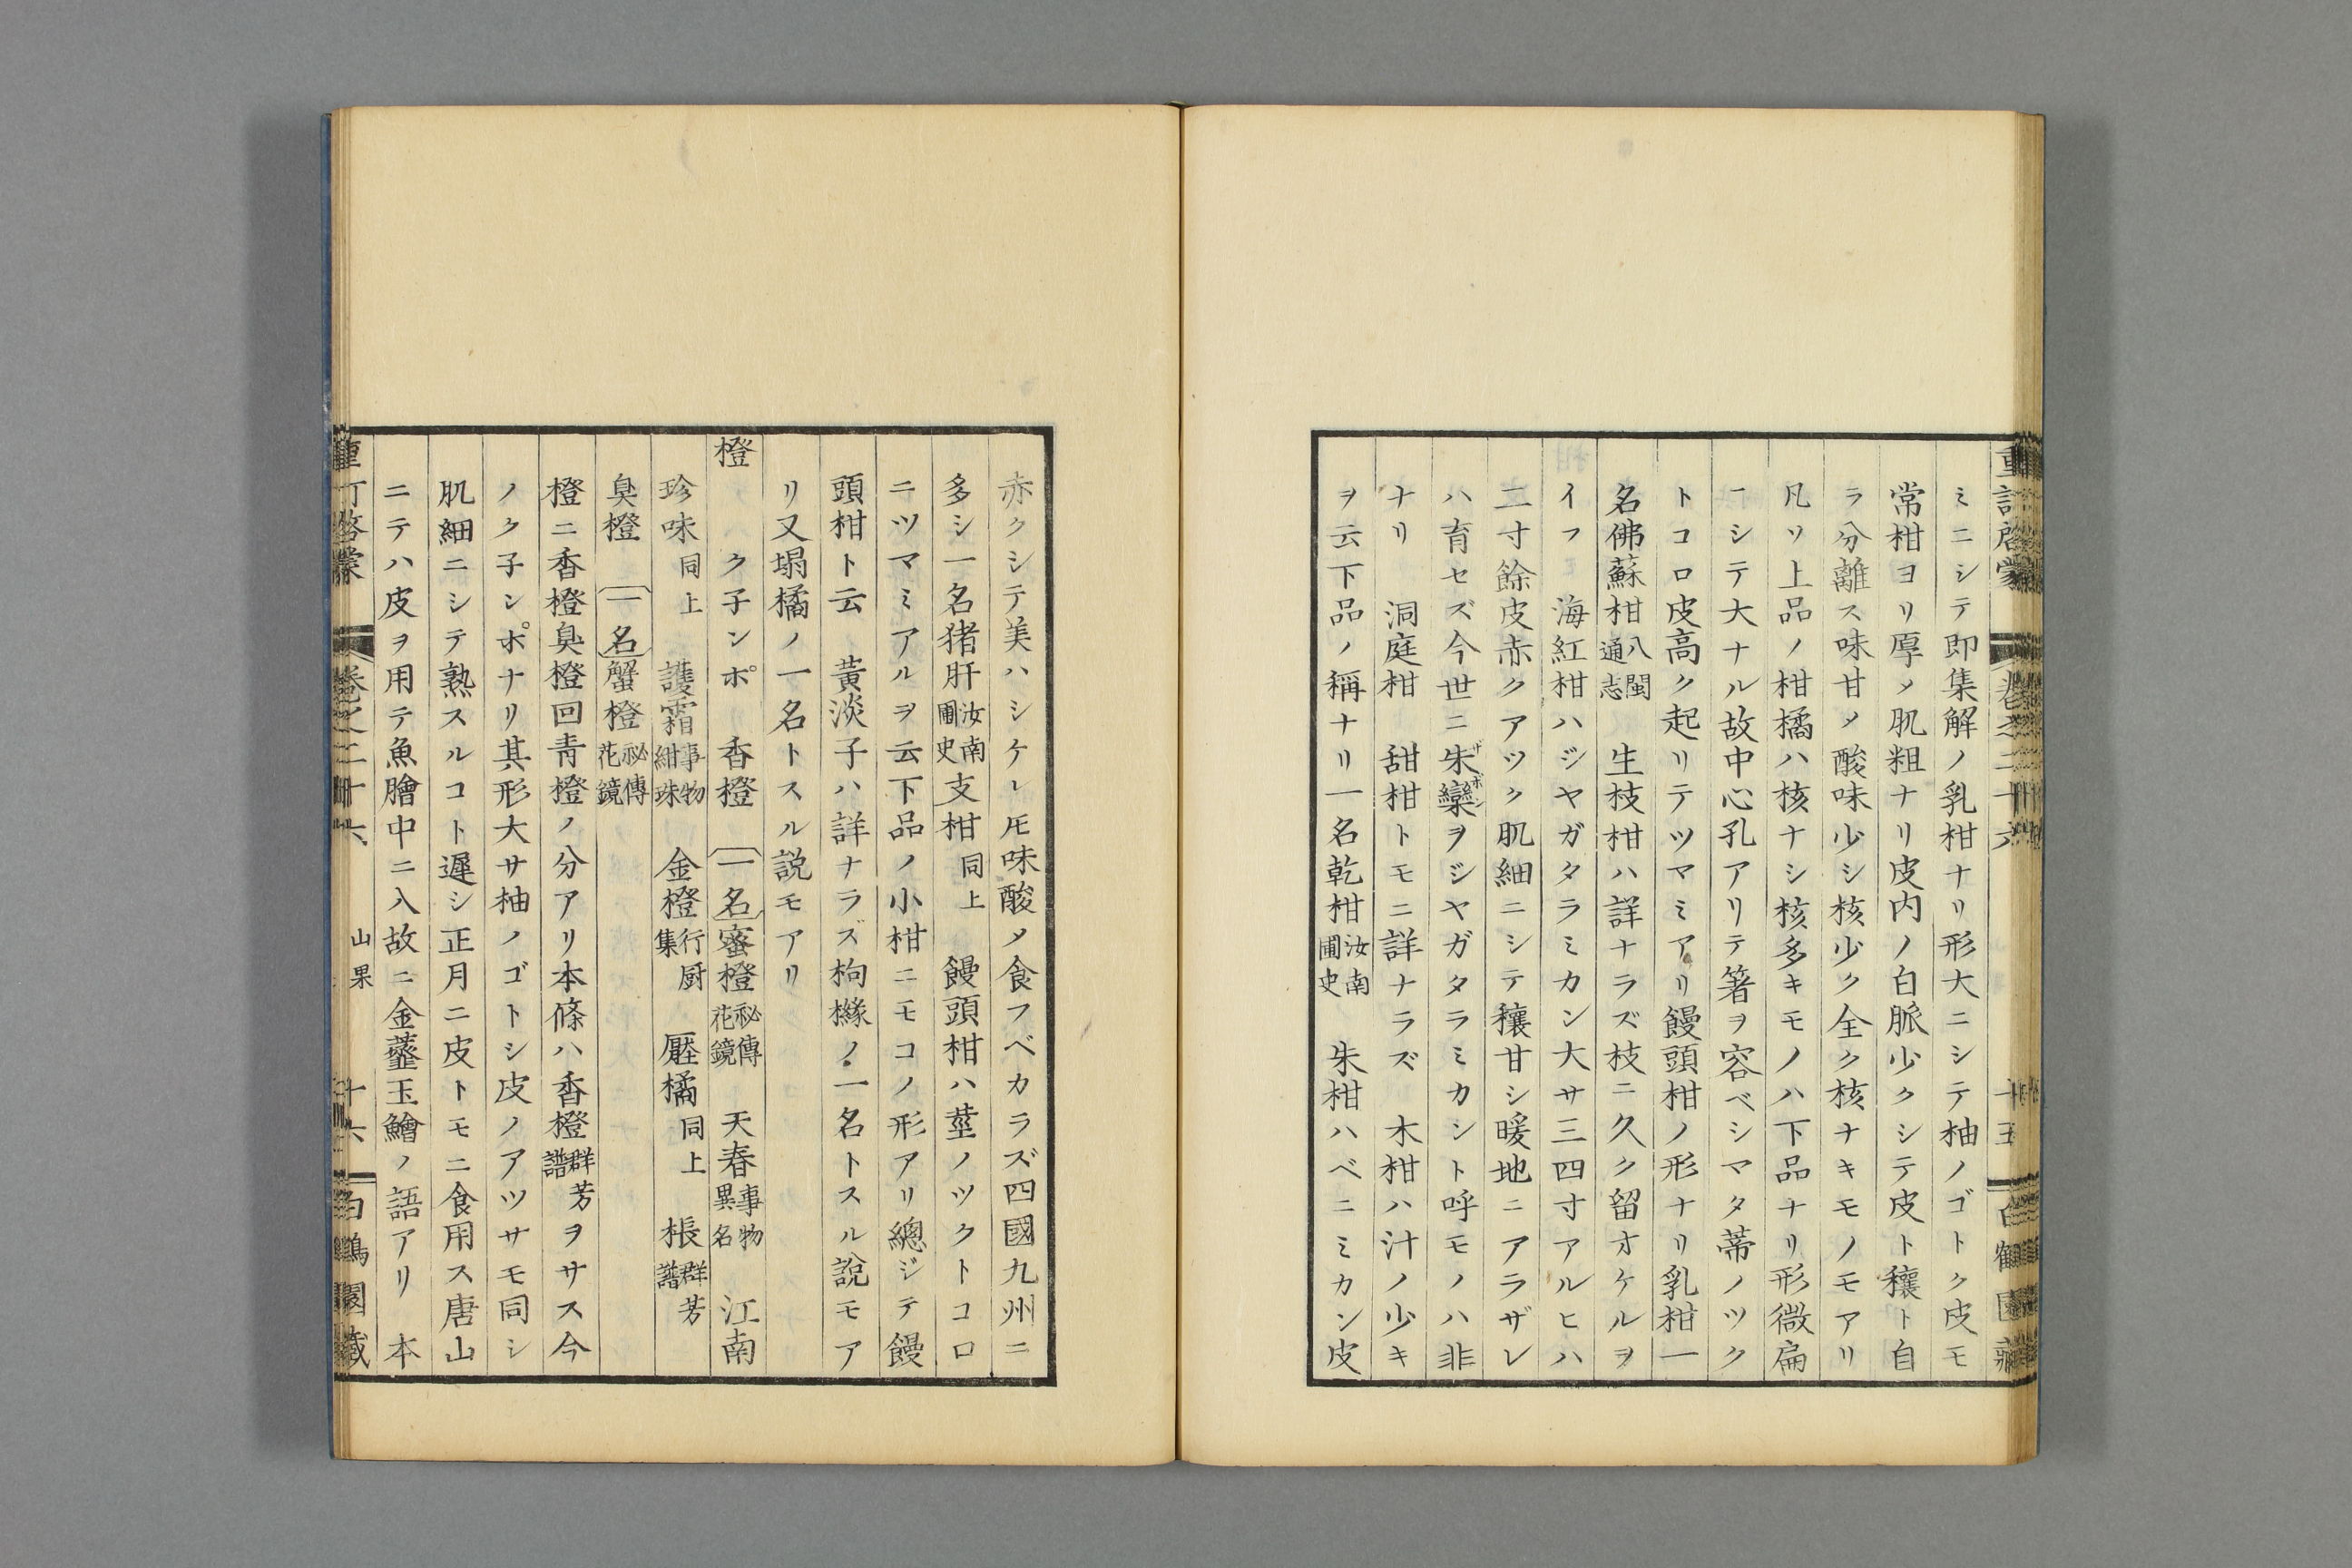 重訂啓蒙 卷之二十六 十五 白鶴園藏
ミニシテ即集解ノ乳柑ナリ形大ニシテ柚ノゴトク皮モ
常柑ヨリ厚メ肌粗ナリ皮内ノ白脈少クシテ皮ト穰ト自
ラ分離ス味甘メ酸味少シ核少ク全ク核ナキモノモアリ
凡ソ上品ノ柑橘ハ核ナシ核多キモノハ下品ナリ形微扁
ーシテ大ナル故中心孔アリテ箸ヲ容ベシマタ蒂ノツク
トコロ皮高ク起リテツマミアリ饅頭柑ノ形ナリ乳柑一
名佛蘇柑八閩通志 生枝柑ハ詳ナラズ枝ニ久ク留オケルヲ
イフ 海紅柑ハジヤガタラミカン大サ三四寸アルヒハ
二寸餘皮赤クアツク肌細ニシテ穰甘シ暖地ニアラザレ
ハ育セズ今世ニ朱欒ヲジヤガタラミカント呼モノハ非
ナリ 洞庭柑 甜柑トモニ詳ナラズ 木柑ハ汁ノ少キ
ヲ云下品ノ稱ナリ一名乾柑汝南圃史 朱柑ハベニミカン皮
赤クシテ美ハシケレ𪜈味酸メ食フベカラズ四國九州ニ
多シ一名猪肝汝南圃史支柑同上 饅頭柑ハ莖ノツクトコロ
ニツマミアルヲ云下品ノ小柑ニモコノ形アリ總ジテ饅
頭柑ト云 黄淡子ハ詳ナラズ枸櫞ノ一名トスル說モア
リ又塌橘ノ一名トスル説モアリ
橙 ク子ンポ 香橙 一名蜜橙秘傳花鏡 天春事物異名 江南
珍味同上 護霜事物紺珠 金橙行厨集 㕓橘同上 棖群芳譜
臭橙 一名蟹橙秘傳花鏡
橙ニ香橙臭橙回青橙ノ分アリ本條ハ香橙群芳譜ヲサス今
ノク子ンポナリ其形大サ柚ノゴトシ皮ノアツサモ同シ
肌細ニシテ熟スルコト遲シ正月ニ皮トモニ食用ス唐山
ニテハ皮ヲ用テ魚膾中ニ入故ニ金虀玉鱠ノ語アリ 本
重訂啓蒙 卷之二十六 山果 十六 白鶴園藏